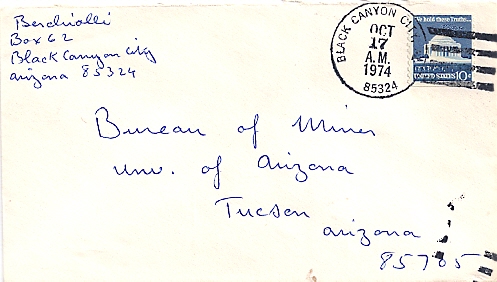 Berchialli
Box 62
Black Canyon City
arizona 85324
BLACK CANYON CITY
OCT
17
A.M.
1974
85324
We hold these Truths...
UNITED STATES 10¢
Bureau of Mines
Univ. of Arizona
Tucson
arizona
85705